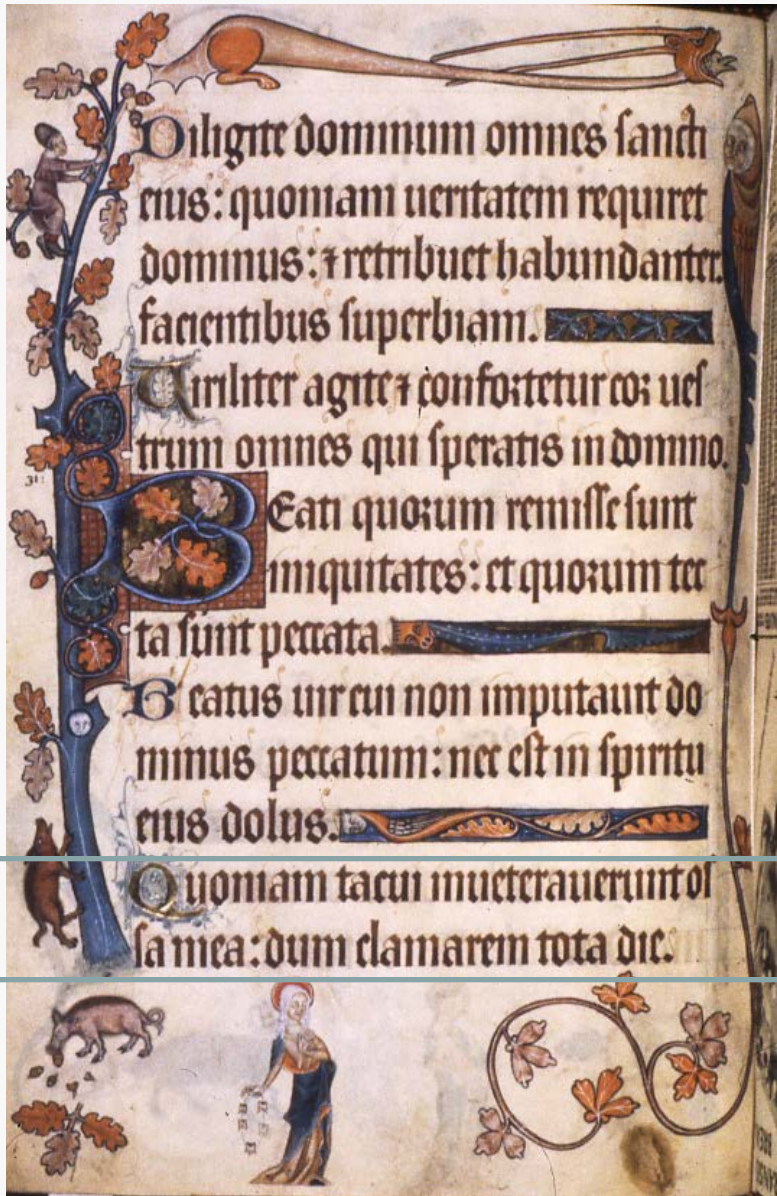 Diligite dominum omnes sancti
eius: quoniam ueritatem requiret
dominus: ⁊ retribuet habundanter
facientibus superbiam.
Uiriliter agite ⁊ confortetur cor ues
trum omnes qui speratis in domino.
31:
Beati quorum remisse sunt
iniquitates: et quorum tec
ta sunt peccata.
Beatus uir cui non imputauit do
minus peccatum: nec est in spiritu
eius dolus.
Quoniam tacui inueterauerunt os
sa mea: dum clamarem tota die.